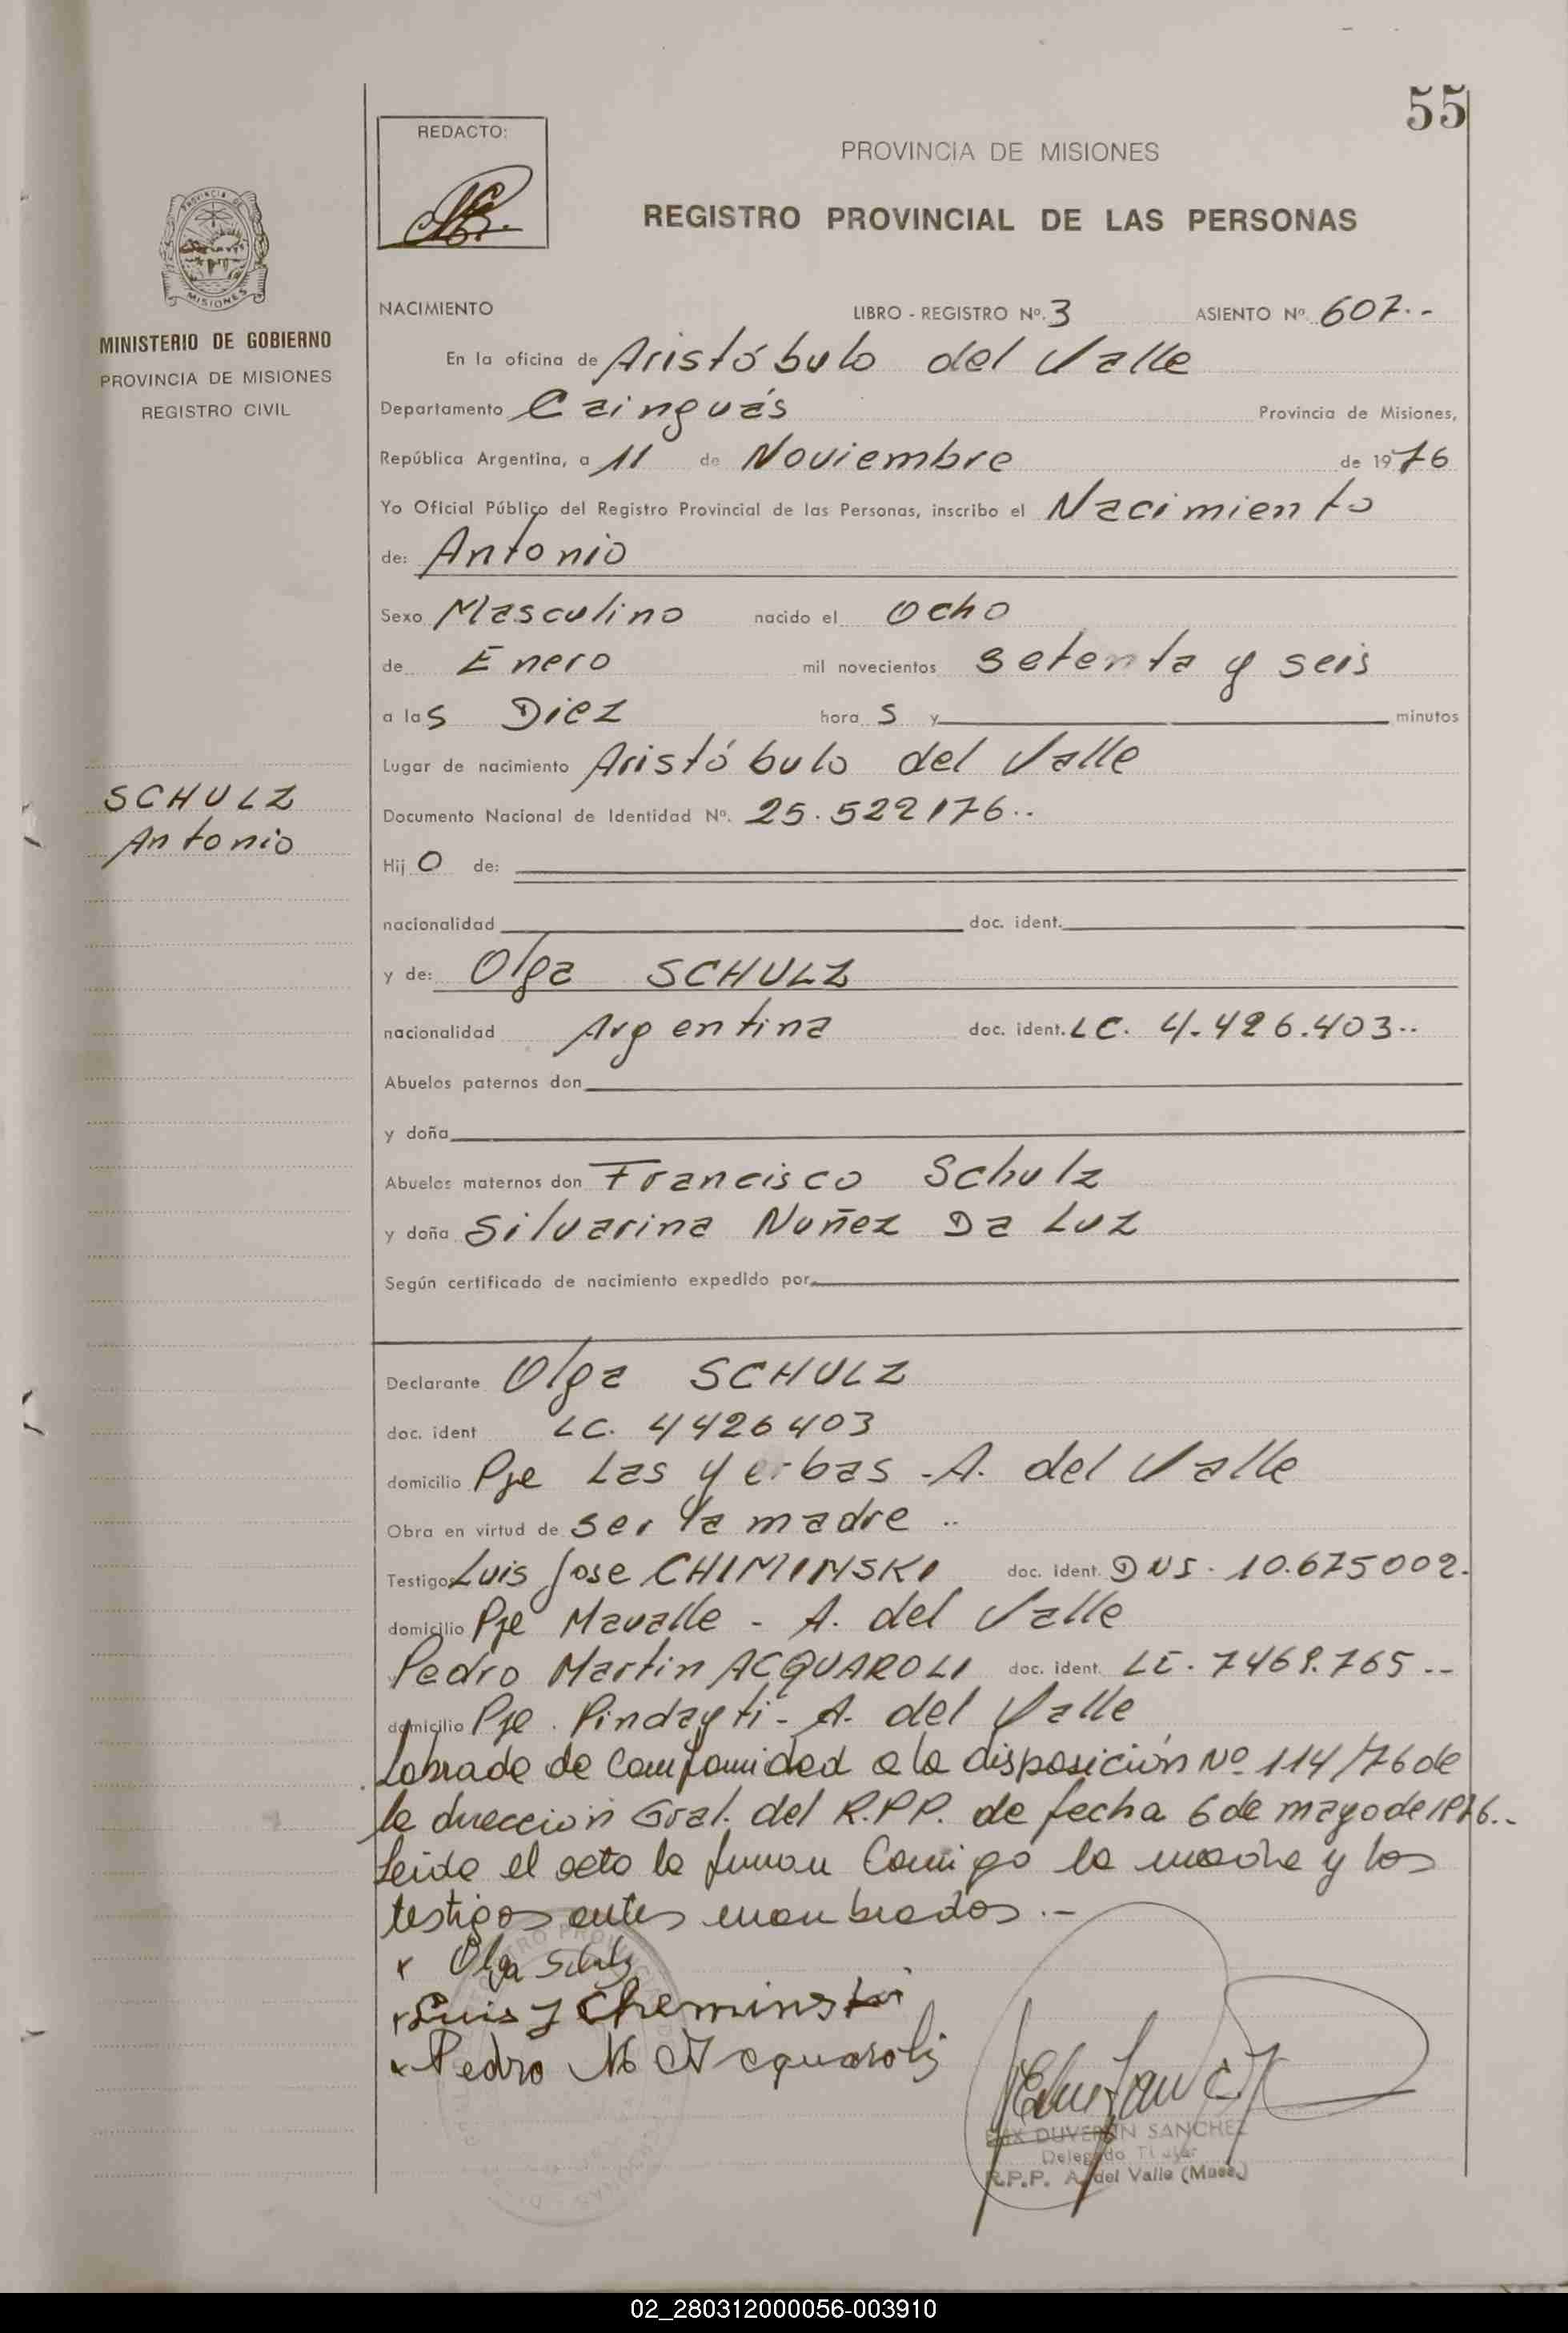 55
REDACTO:
PROVINCIA DE MISIONES
REGISTRO PROVINCIAL DE LAS PERSONAS
MISIONES
MINISTERIO DE GOBIERNO
PROVINCIA DE MISIONES
REGISTRO CIVIL
NACIMIENTO LIBRO - REGISTRO Nº. 3 ASIENTO Nº 607.-
En la oficina de Aristóbulo del Valle
Departamento Cainguás Provincia de Misiones,
República Argentina, a 11 de Noviembre de 1976
Yo Oficial Público del Registro Provincial de las Personas, inscribo el Nacimiento
de: Antonio
Sexo Masculino nacido el Ocho
de Enero mil novecientos setenta y seis
a las Diez horas y minutos
Lugar de nacimiento Aristóbulo del Valle
SCHULZ
Antonio
Documento Nacional de Identidad Nº. 25.522176..
Hijo de:
nacionalidad doc. ident.
y de: Olga SCHULZ
nacionalidad Argentina doc. ident. LC. 4.426.403..
Abuelos paternos don
y doña
Abuelos maternos don Francisco Schulz
y doña Silvarina Nuñez Da Luz
Según certificado de nacimiento expedido por
Declarante Olga SCHULZ
doc. ident LC. 4426403
domicilio Pje Las yerbas - A. del Valle
Obra en virtud de ser la madre ..
Testigos Luis Jose CHIMINSKI doc. ident. DNI. 10.675002.
domicilio Pje Mavalle - A. del Valle
Pedro Martin ACQUAROLI doc. ident. LE. 7469.765 --
domicilio Pje. Pindayti - A. del Valle
Labrada de Conformidad a la disposición Nº 114/76 de
la dirección Gral. del R.P.P. de fecha 6 de mayo de 1976..
Leida el acta la firman Conmigo la madre y los
testigos antes nombrados .-
x Olga Schulz
x Luis J Cheminski
x Pedro M Acquaroli
DUVERAN SANCHEZ
Delegado Titular
R.P.P. A. del Valle (Mnes.)
02_280312000056-003910